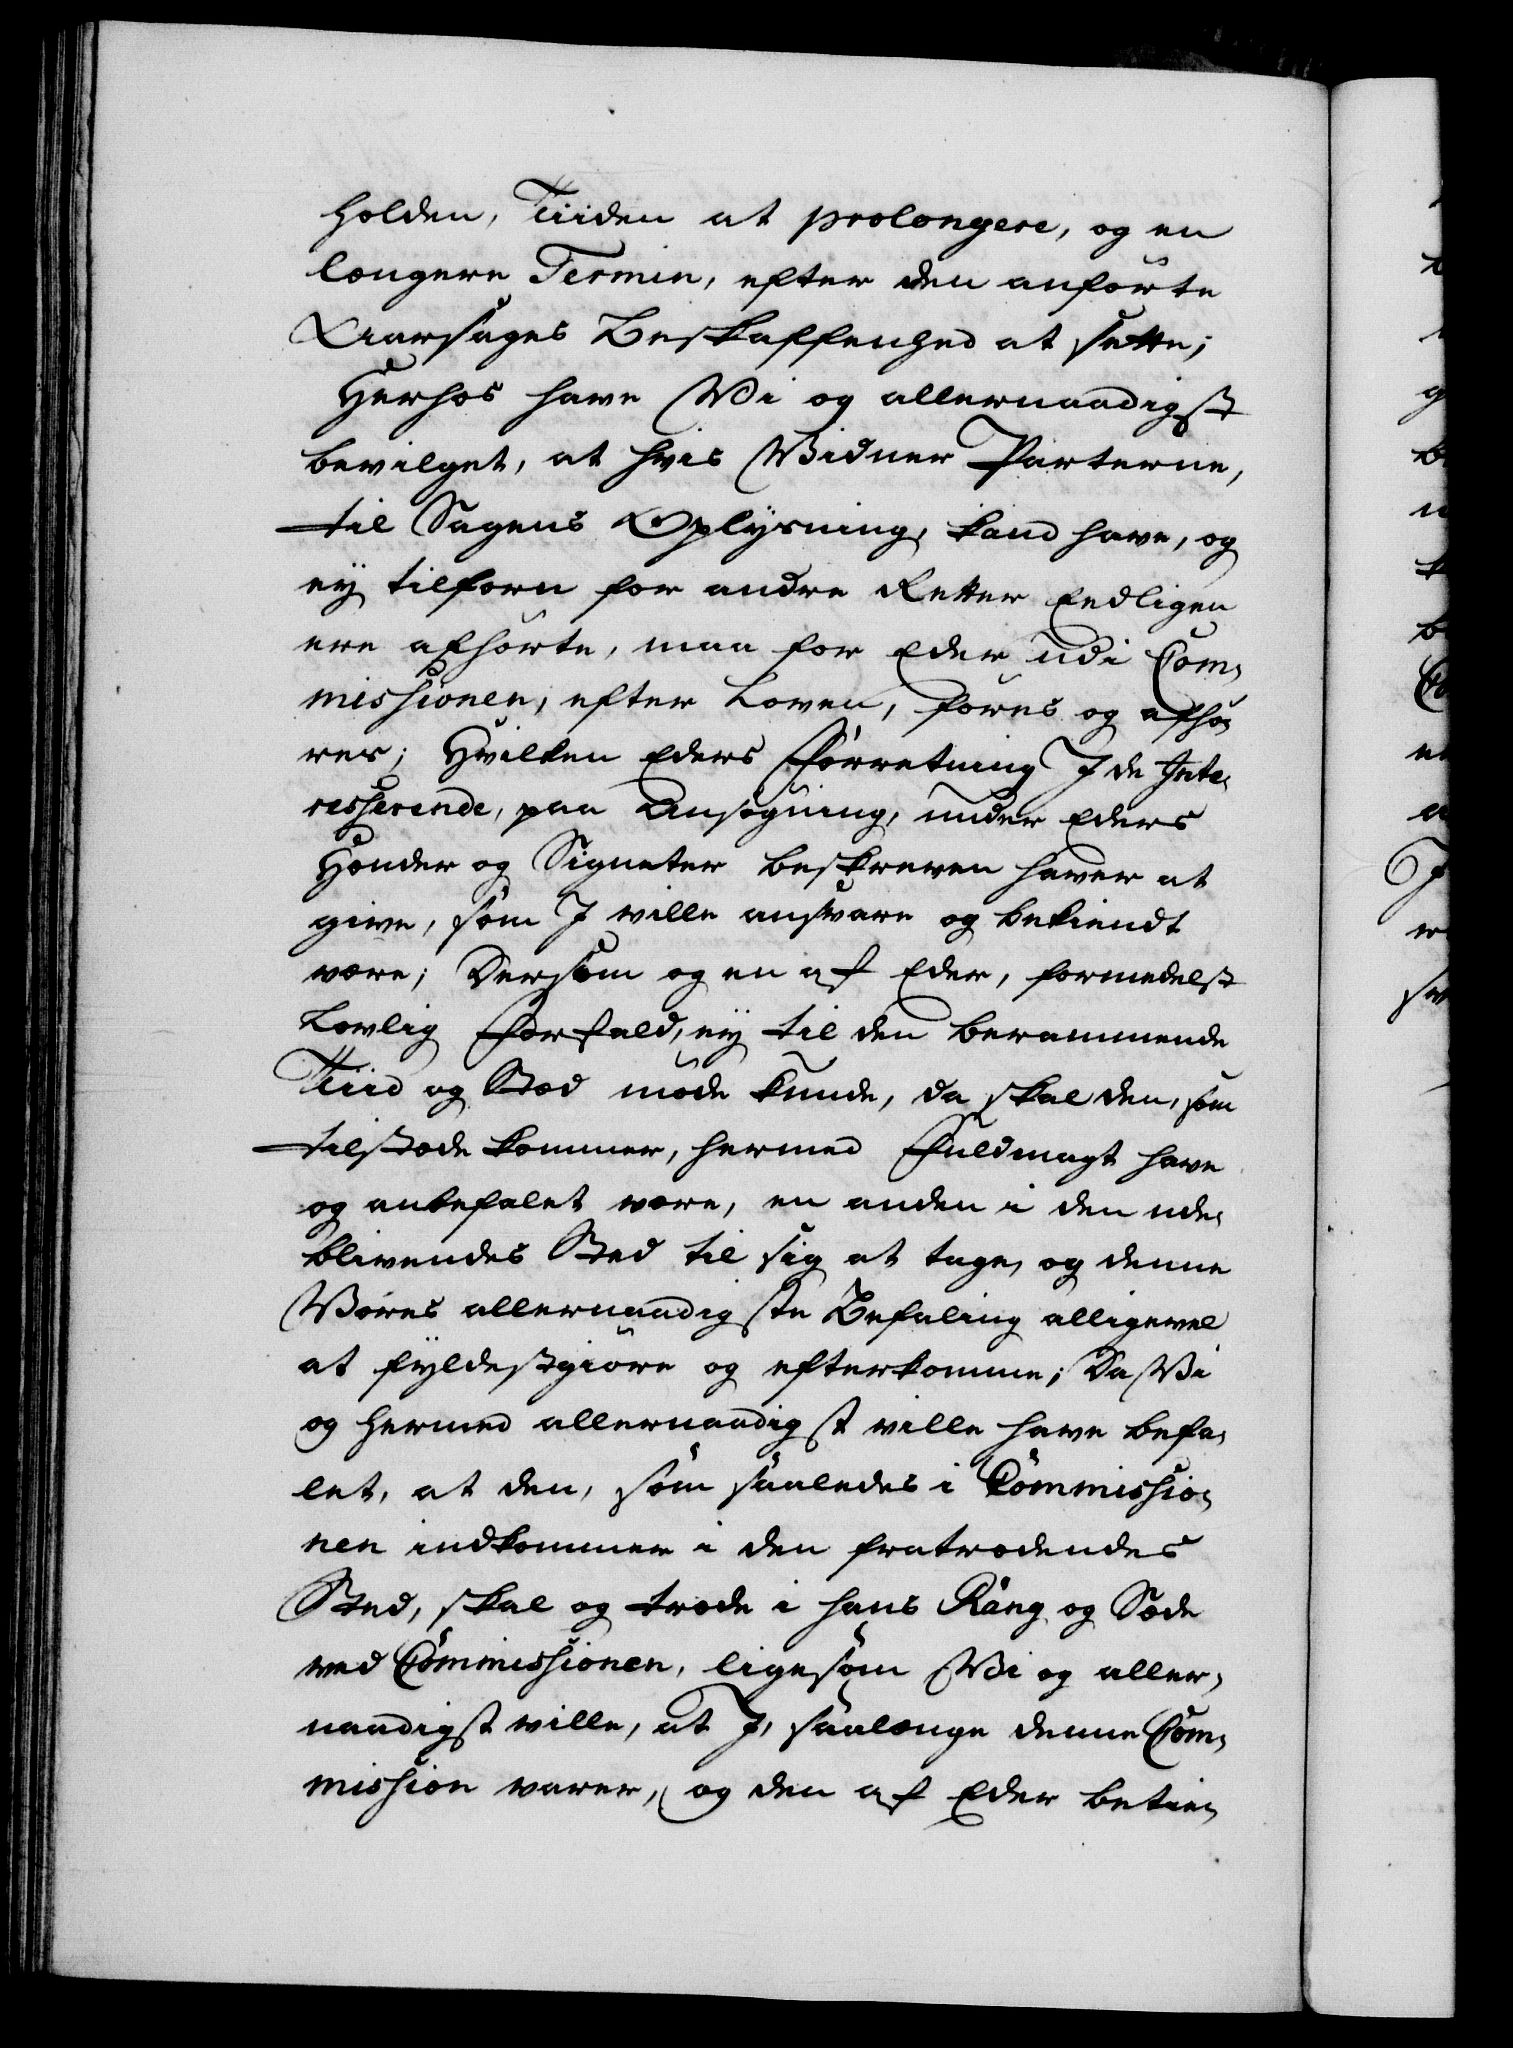 holden, Tiiden at prolongere, og en
længere Termin, efter den anførte
Aarsages Beskaffenhed at sætte;
Herhos have Wi og allernaadigst
bevilget, at hvis Widner Parterne,
til Sagens Oplysning, kand have, og
ey tilforn for andre Retter Endligen
ere afhørte, maa for Eder udi Com-
missionen, efter Loven, føres og afhø-
res; Hvilken Eders Forretning I de Inte-
resserende, paa Ansøgning, under Eders
Hænder og Signeter beskreven haver at
give, som I ville ansvare og bekiendt
være; Dersom og en af Eder, formedelst
Lovlig Forfald, ey til den berammende
Tiid og Stæd møde kunde, da skal den, som
tilstæde kommer, hermed Fuldmagt have
og anbefalet være, en anden i den ude-
blivendes Sted til sig at tage, og denne
Wores allernaadigste Befaling alligevel
at fyldestgiøre og efterkomme; Da Wi
og hermed allernaadigst ville have befa-
let, at den, som saaledes i Commissio-
nen indkommer i den fratrædendes
Sted, skal og træde i hans Rang og Sæde
ved Commissionen, ligesom Wi og aller-
naadigst ville, at I, saalænge denne Com-
mission varer, og den af Eder betie-